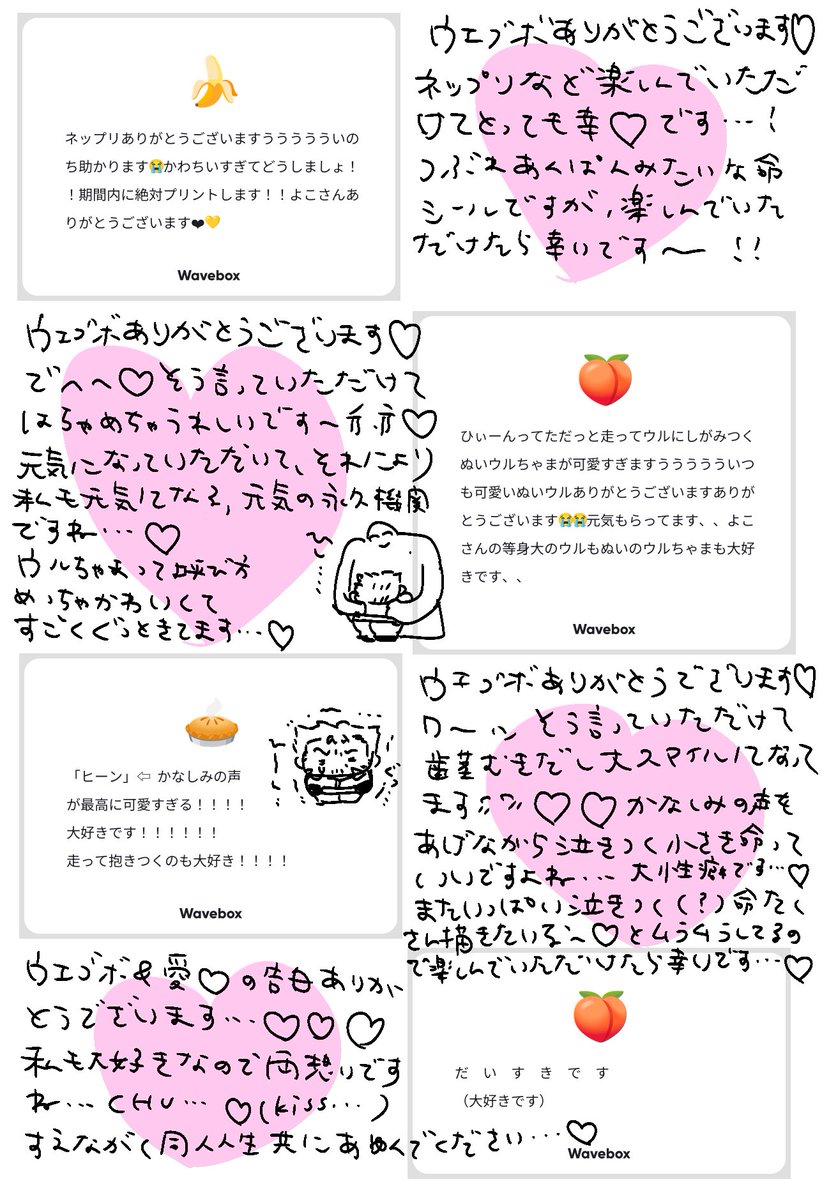 ネップリありがとうございますうううううういの
ち助かります😭かわちいすぎてどうしましょ！
！期間内に絶対プリントします！！よこさんあ
りがとうございます❤💛
Wavebox
ウェブボありがとうございます♡
ネップリなど楽しんでいただ
けてとっても幸♡です…！
つぶれあんぱんみたいな命
シールですが、楽しんでいた
だけたら幸いです〜!!
ウェブボありがとうございます♡
でへへ♡そう言っていただけて
はちゃめちゃうれしいです〜 ♡
元気になっていただいて、それにより
私も元気になる、元気の永久機関
ですね…♡
ウルちゃまって呼び方
めっちゃかわいくて
すごくぐっときてます…♡
ひぃーんってただっと走ってウルにしがみつく
ぬいウルちゃまが可愛すぎますうううううういつ
も可愛いぬいウルありがとうございますありが
とうございます😭😭元気もらってます、、よこ
さんの等身大のウルもぬいのウルちゃまも大好
きです、、
Wavebox
「ヒーン」⇦ かなしみの声
が最高に可愛すぎる！！！！
大好きです！！！！！！
走って抱きつくのも大好き！！！！
Wavebox
ウェブボありがとうございます♡
ワーッ そう言っていただけて
歯茎むきだし大スマイルになって
ます ♡♡かなしみの声を
あげながら泣きつく小さき命って
いいですよね…大性癖です…♡
またいっぱい泣きつく(?)命たく
さん描きたいな〜♡とムラムラしてるの
で楽しんでいただけたら幸いです…♡
ウェブボ&愛♡の告白ありが
とうございます…♡♡♡
私も大好きなので両想いです
ね…CHU…♡(kiss…)
すえながく同人人生共にあゆんでください…♡
だ い す き で す
（大好きです）
Wavebox